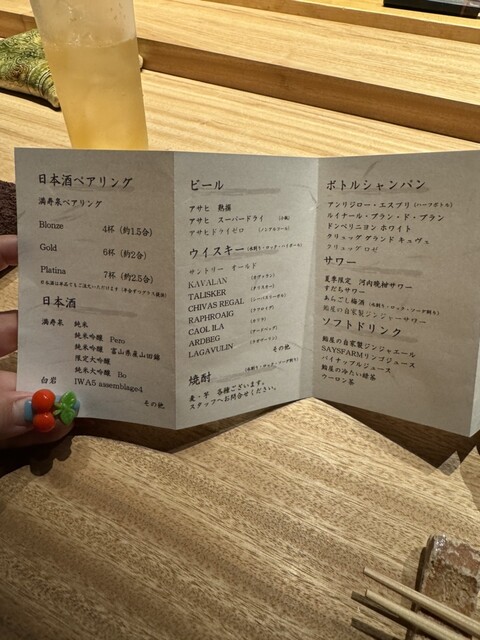 日本酒ペアリング
満寿泉ペアリング
Blonze 4杯 (約1.5合)
Gold 6杯 (約2合)
Platina 7杯 (約2.5合)
日本酒
満寿泉 純米
純米吟醸 Pero
純米吟醸 富山県産山田錦
限定大吟醸
純米大吟醸 Bo
白岩 IWA5 assemblage4
その他
ビール
アサヒ 熟撰
アサヒ スーパードライ (小瓶)
アサヒドライゼロ (ノンアルコール)
ウイスキー (水割り・ロック・ハイボール)
サントリー オールド
KAVALAN (カヴァラン)
TALISKER (タリスカー)
CHIVAS REGAL (シーバスリーガル)
RAPHROAIG (ラフロイグ)
CAOL ILA (カリラ)
ARDBEG (アードベッグ)
LAGAVULIN (ラガヴーリン)
その他
焼酎 (水割り・ロック・ソーダ割り)
麦・芋 各種ございます。
スタッフへお問合せください。
ボトルシャンパン
アンリジロー・エスプリ (ハーフボトル)
ルイナール・ブラン・ド・ブラン
ドンペリニヨン ホワイト
クリュッグ グランド キュヴェ
クリュッグ ロゼ
サワー
夏季限定 河内晩柑サワー
すだちサワー
あらごし梅酒 (水割り・ロック・ソーダ割り)
鮨屋の自家製ジンジャーサワー
ソフトドリンク
鮨屋の自家製ジンジャエール
SAYSFARMリンゴジュース
パイナップルジュース
鮨屋の冷たい緑茶
ウーロン茶